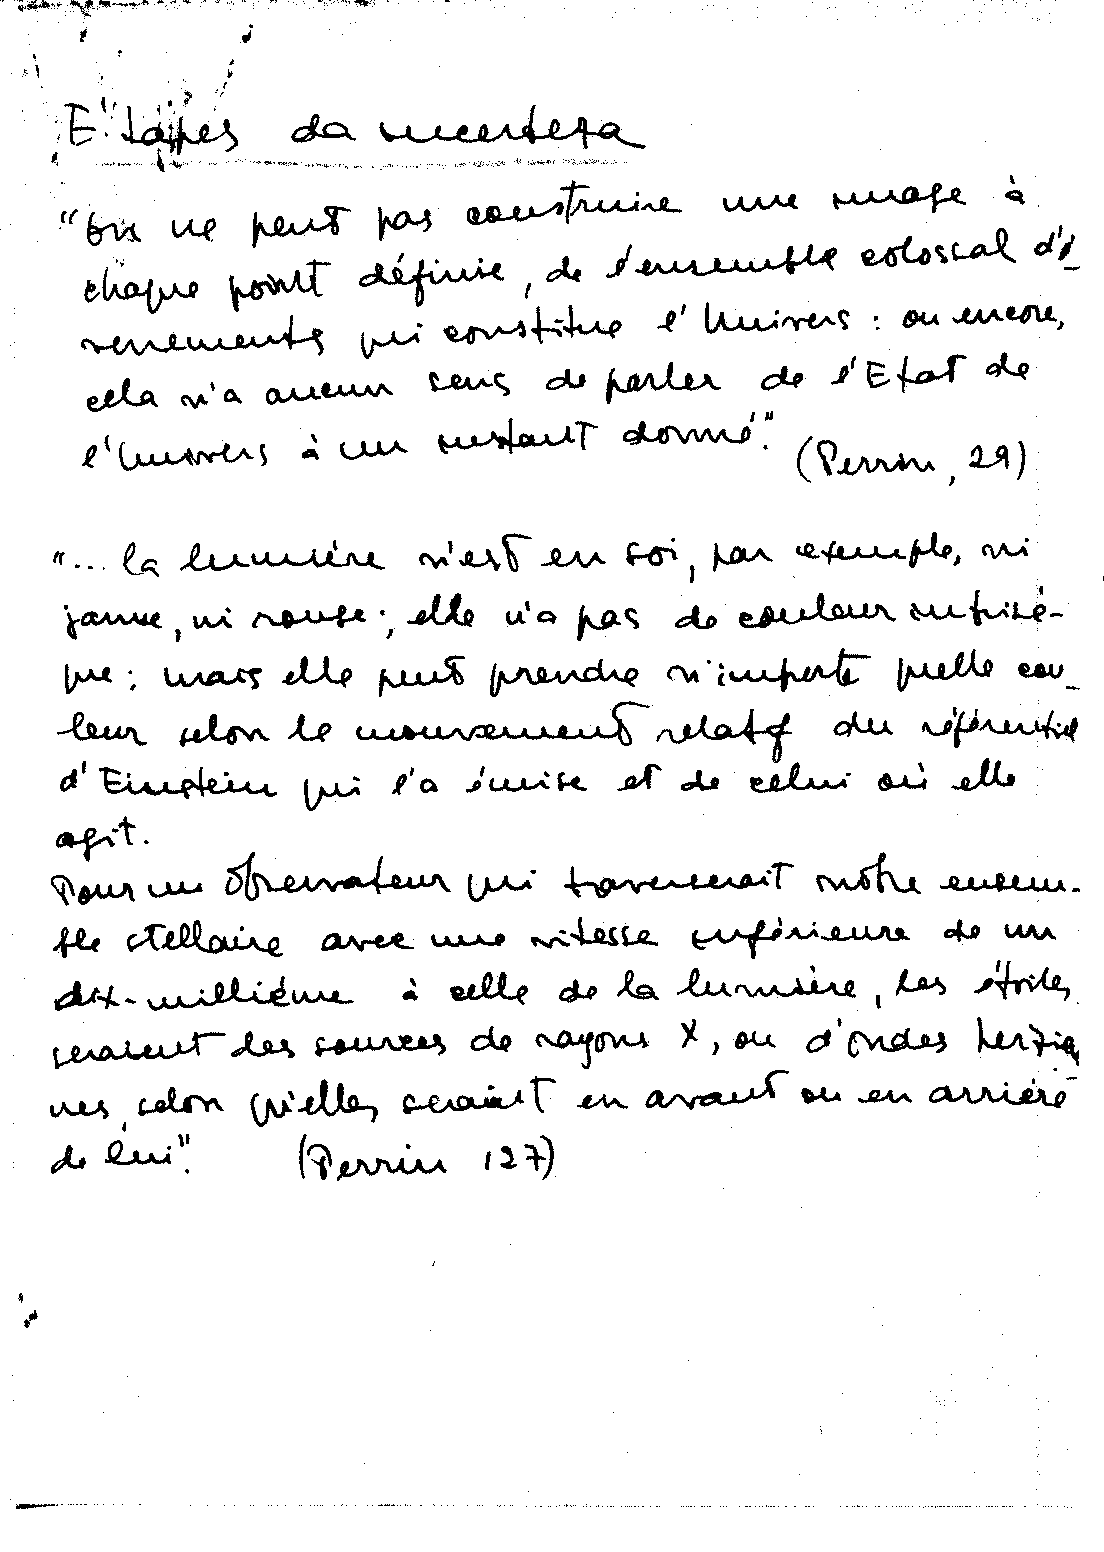 Etapes da incerteza
"On ne peut pas construire une image à
chaque point définie, de l'ensemble colossal d'é_
venements qui constitue l'Univers : ou encore,
cela n'a aucun sens de parler de l'Etat de
l'Univers à un instant donné."
(Perrin, 29)
"... la lumière n'est en soi, par exemple, ni
jaune, ni rouge ; elle n'a pas de couleur intrisè-
que ; mais elle peut prendre n'importe quelle cou_
leur selon le mouvement relatif du référentiel
d'Einstein qui l'a émise et de celui où elle
agit.
Pour un observateur qui traverserait notre ensem-
ble stellaire avec une vitesse inférieure de un
dix-millième à celle de la lumière, les étoiles
seraient des sources de rayons X, ou d'ondes herzien_
nes, selon qu'elles seraient en avant ou en arrière
de lui". (Perrin 127)